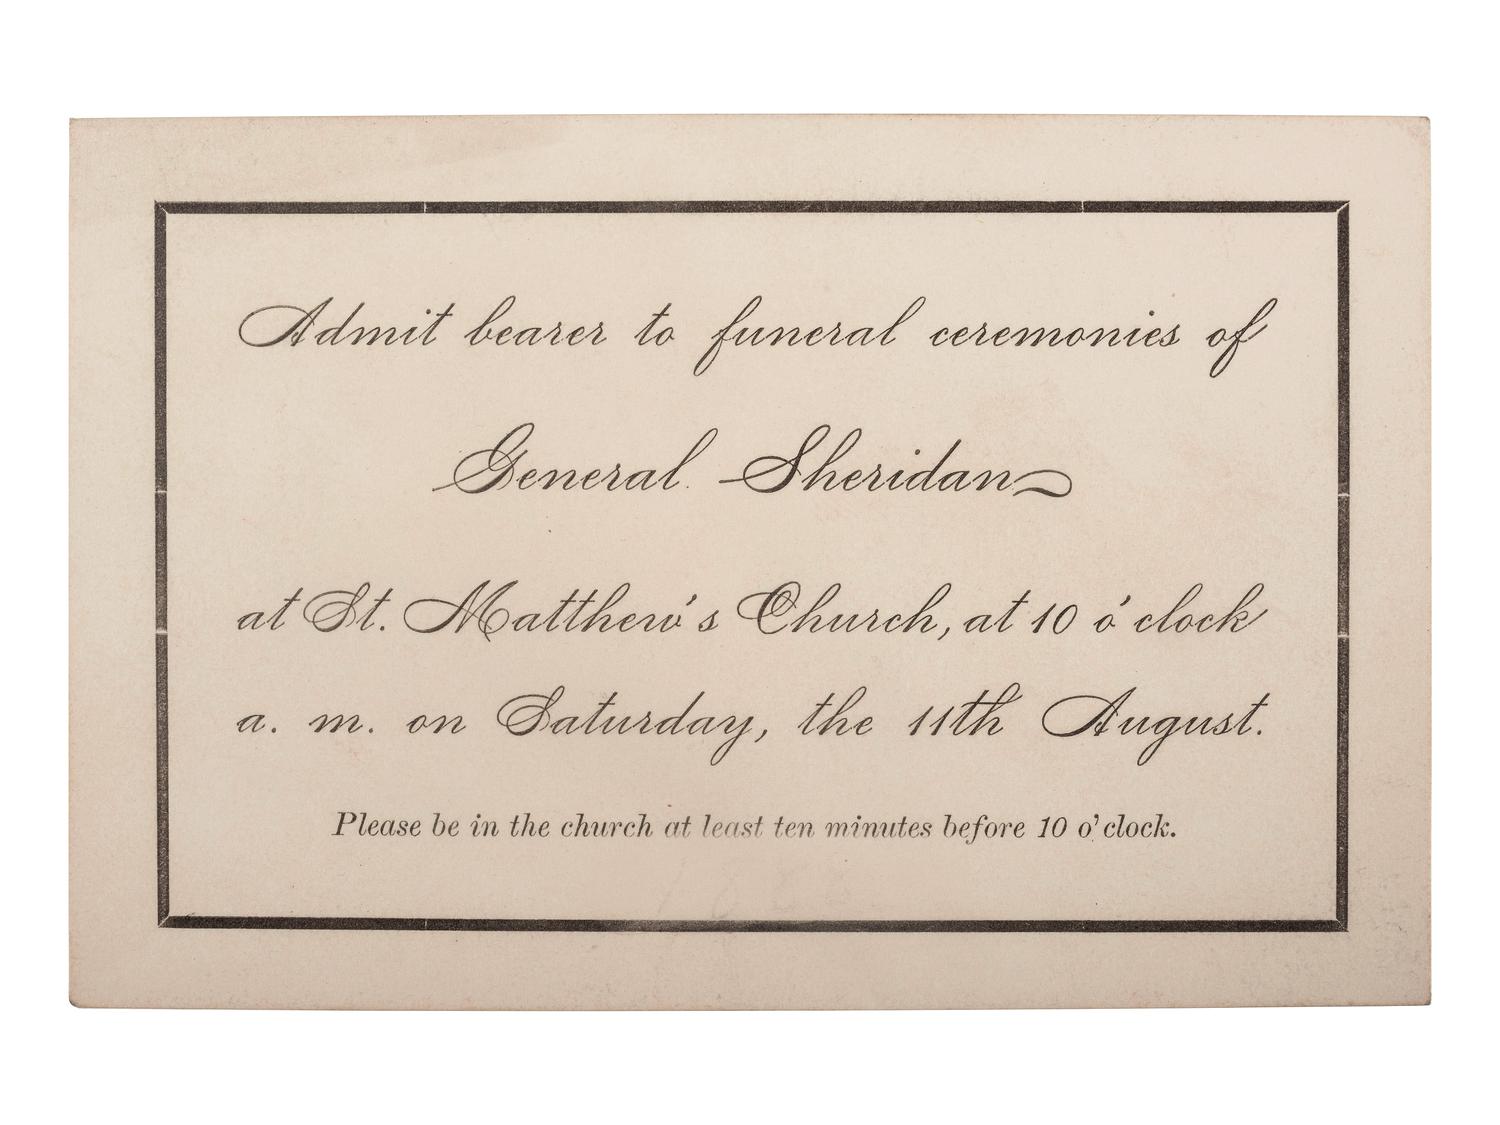 Admit bearer to funeral ceremonies of
General Sheridan
at St. Matthew's Church, at 10 o'clock
a. m. on Saturday, the 11th August.
Please be in the church at least ten minutes before 10 o'clock.